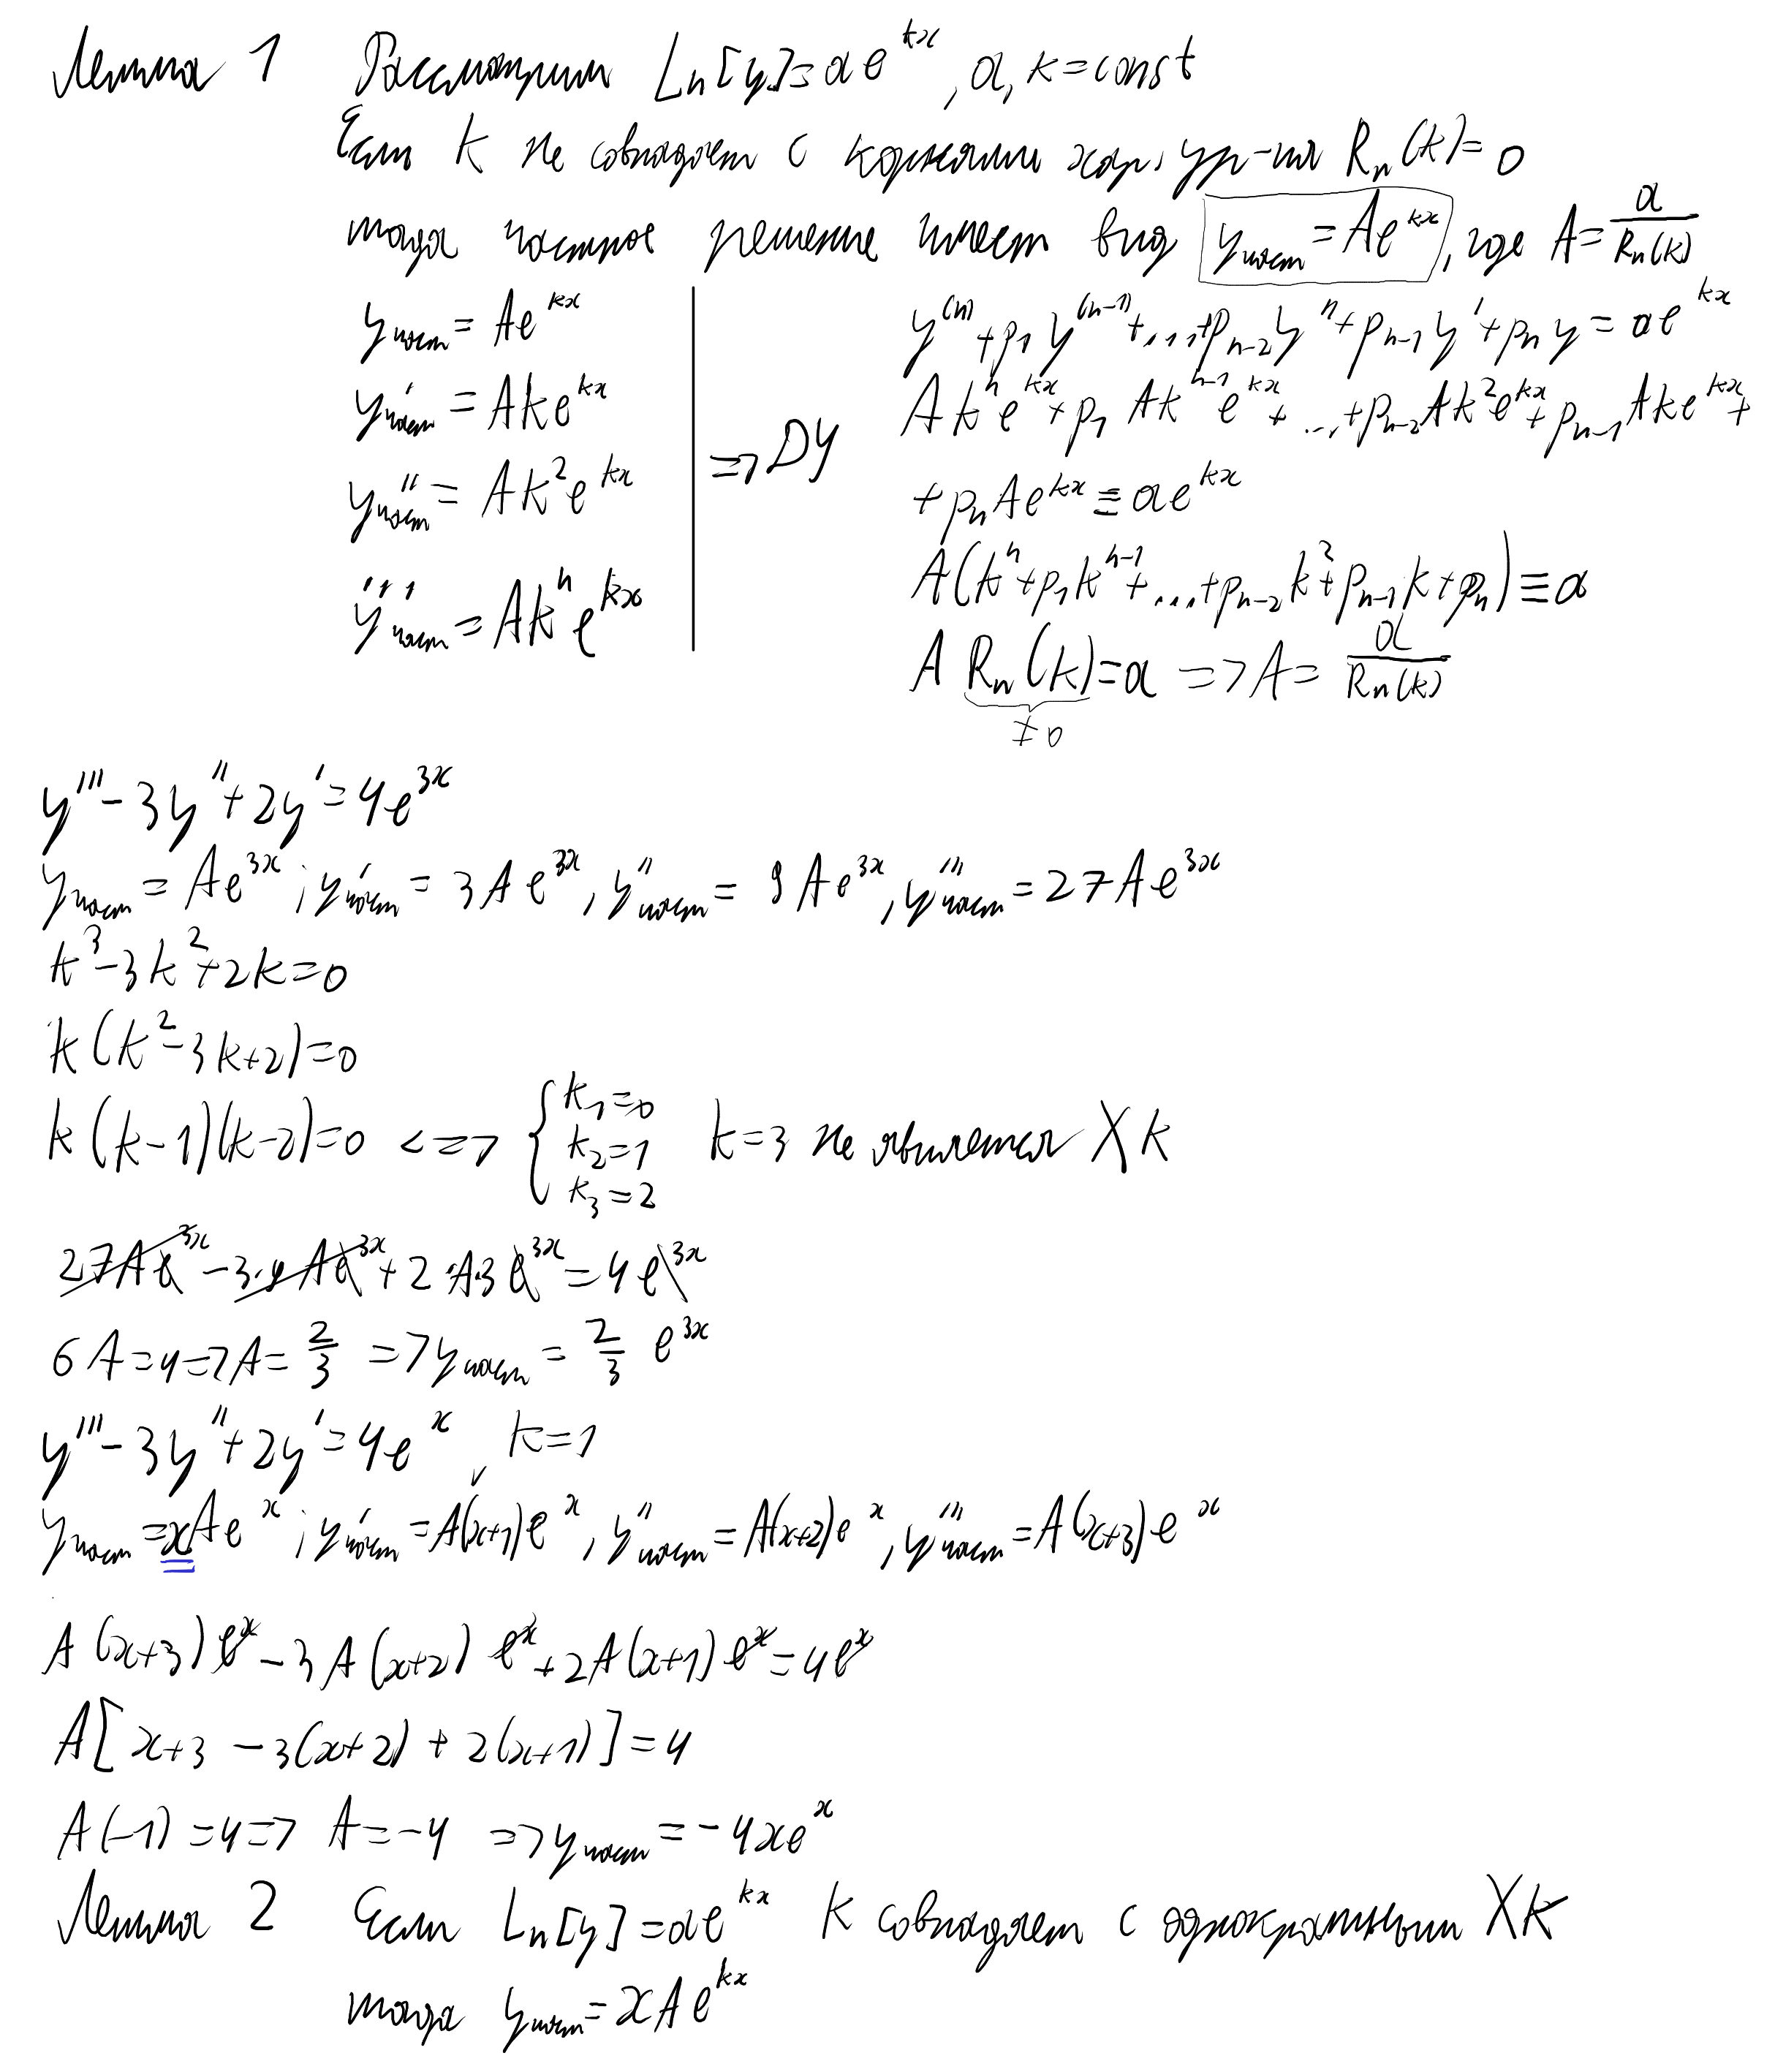 Лемма 1 Рассмотрим Ln[y]=ae^{kx}, a, k=const
Если k не совпадает с корнями хар. ур-ия Rₙ(k)=0
тогда частное решение имеет вид y_{част}=Ae^{kx}, где A=a/Rₙ(k)
y_{част}=Ae^{kx}
y'_{част}=Ake^{kx}
y''_{част}=Ak²e^{kx}
y'''_{част}=Akⁿe^{kx}
=> ДУ
y^{(n)}+p₁y^{(n-1)}+...+p_{n-2}y''+p_{n-1}y'+pₙy=ae^{kx}
Akⁿe^{kx}+p₁Ak^{n-1}e^{kx}+...+p_{n-2}Ak²e^{kx}+p_{n-1}Ake^{kx}+
+pₙAe^{kx}≡ae^{kx}
A(kⁿ+p₁k^{n-1}+...+p_{n-2}k²+p_{n-1}k+pₙ)≡a
A Rₙ(k)=a => A=a/Rₙ(k)
≠0
y'''-3y''+2y'=4e^{3x}
y_{част}=Ae^{3x}; y'_{част}=3Ae^{3x}, y''_{част}=9Ae^{3x}, y'''_{част}=27Ae^{3x}
k³-3k²+2k=0
k(k²-3k+2)=0
k(k-1)(k-2)=0 <=> { k₁=0 k₂=1 k₃=2 k=3 не является Xk
27Ae^{3x}-3·9Ae^{3x}+2·A·3e^{3x}=4e^{3x}
6A=4=>A=2/3 => y_{част}=2/3 e^{3x}
y'''-3y''+2y'=4e^{x}, k=1
y_{част}=xAe^{x}; y'_{част}=A(x+1)e^{x}, y''_{част}=A(x+2)e^{x}, y'''_{част}=A(x+3)e^{x}
A(x+3)e^{x}-3A(x+2)e^{x}+2A(x+1)e^{x}=4e^{x}
A[x+3-3(x+2)+2(x+1)]=4
A(-1)=4=> A=-4 => y_{част}=-4xe^{x}
Лемма 2 Если Ln[y]=ae^{kx} k совпадает с однократным Xk
тогда y_{част}=xAe^{kx}